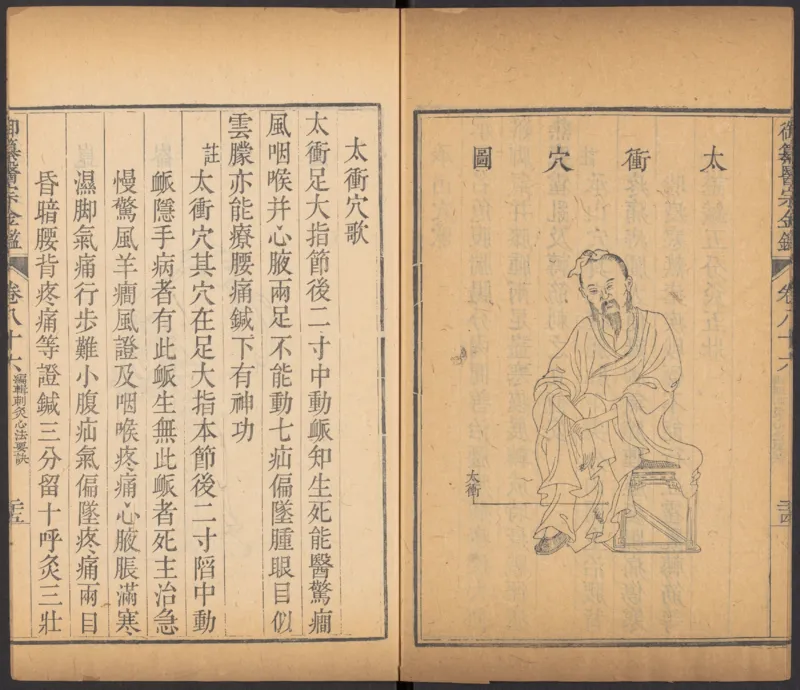 太衝穴圖
太衝
御纂醫宗金鑑
卷八十六
太衝穴歌
太衝足大指節後二寸中動䘑知生死能醫驚癎
風咽喉并心腋兩足不能動七疝偏墜腫眼目似
雲朦亦能療腰痛鍼下有神功
註太衝穴其穴在足大指本節後二寸䧟中動
䘑隱手病者有此䘑生無此䘑者死主治急
慢驚風羊癎風證及咽喉疼痛心腋脹滿寒
濕脚氣痛行步難小腹疝氣偏墜疼痛兩目
昏暗腰背疼痛等證鍼三分留十呼灸三壯
御纂醫宗金鑑
卷八十六
編輯刺灸心法要訣
三五